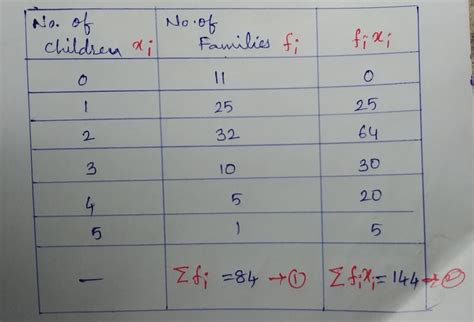 No. of children xi | No. of Families fi | fi xi
0 | 11 | 0
1 | 25 | 25
2 | 32 | 64
3 | 10 | 30
4 | 5 | 20
5 | 1 | 5
— | Σfi = 84 → ① | Σfixi = 144 → ②